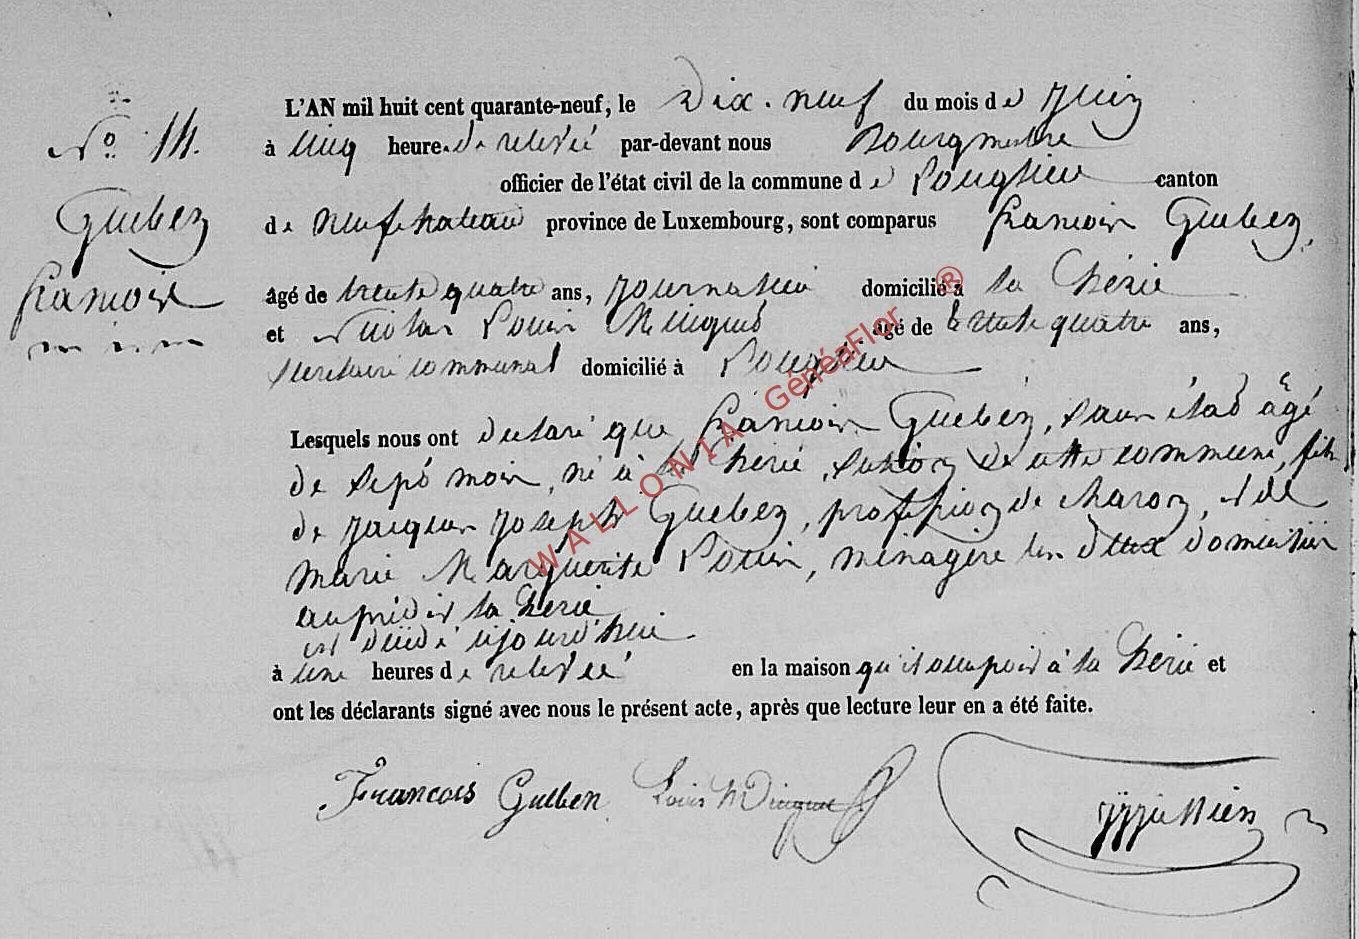 N° 14.
Guebez
francois
L'AN mil huit cent quarante-neuf, le Dix-neuf du mois de Juin
à cinq heures de relevée par-devant nous Bourgmestre
officier de l'état civil de la commune de Longlier canton
de neufchateau province de Luxembourg, sont comparus francois Guebez,
âgé de trente quatre ans, journalier domicilié à la Cherie
et Nicolas Louis Mlinguet âgé de trente quatre ans,
secretaire communal domicilié à Longlier
Lesquels nous ont declaré que francois Guebez, sans état âgé
de sept mois, né à la Cherie, section de cette commune, fils
de Jacques Joseph Guebez, profession de charon, et de
marie Marguerite Louis, ménagère les deux domiciliés
au prédit la Cherie
est décédé aujourd'hui
à une heures de relevée en la maison qu'il occupoit à la Cherie et
ont les déclarants signé avec nous le présent acte, après que lecture leur en a été faite.
Francois Guebez Louis
WALLONIA GénéaFlor ®